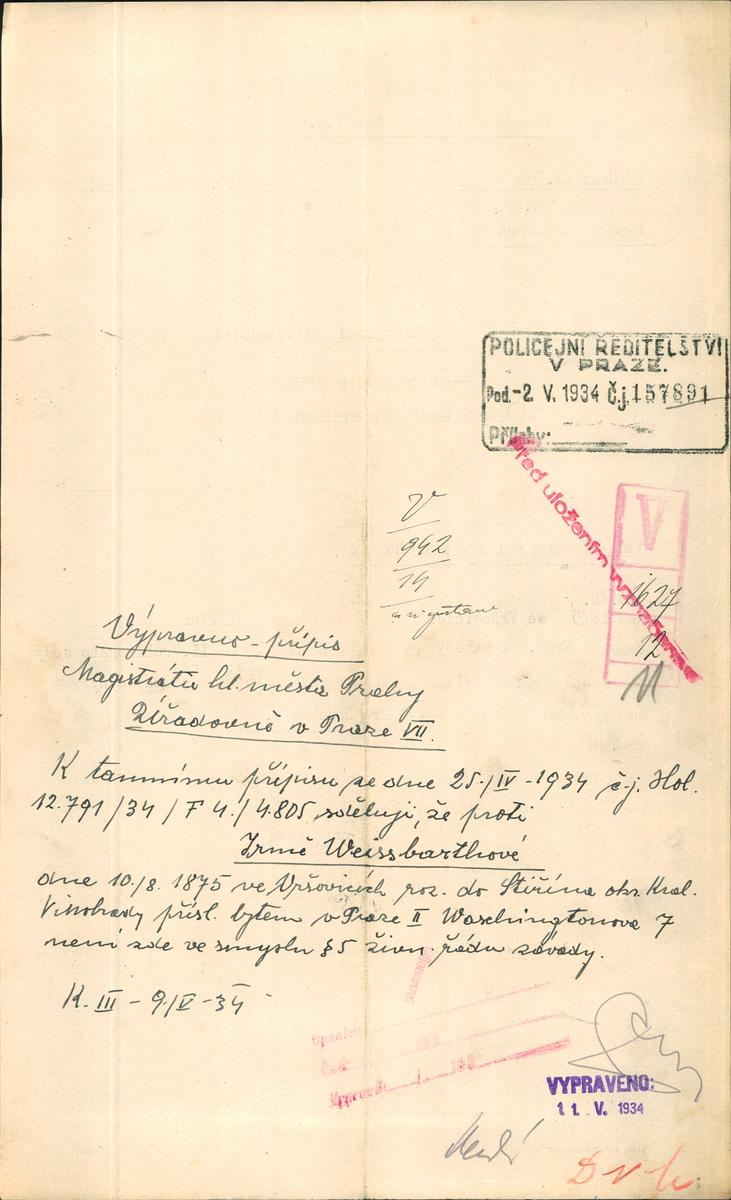 POLICEJNÍ ŘEDITELSTVÍ
V PRAZE.
Pod. -2. V. 1934 Č.j. 157891
Přílohy:
před uložením
V
V
942
14
1627
12
Výpravno - přípis
Magistrátu hl. města Prahy
Úřadovně v Praze VII.
K tamnímu přípisu ze dne 25./IV - 1934 č.j. Hol.
12.791/34 / F 4./4.805, sděluji, že proti
Irmě Weissbarthové
dne 10./8. 1875 ve Vršovicích roz. do Štiřína okr. Král.
Vinohrady přísl. bytem v Praze II Waschingtonova 7
není zde ve smyslu § 5 živn. řádu závady.
K. III - 9./V - 34
Opsáno
Vypravil 193
VYPRAVENO:
11. V. 1934